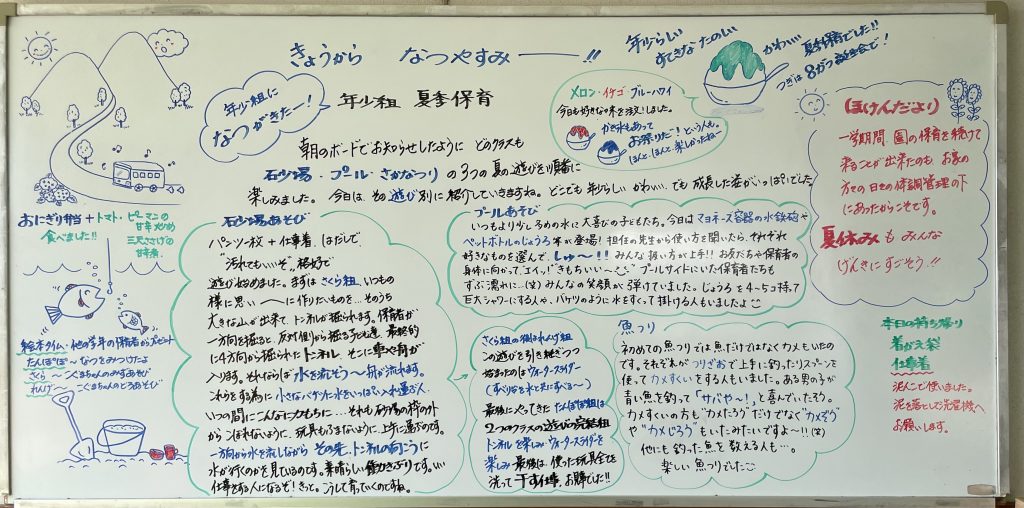 きょうから なつやすみー!!
年少らしい
すてきな たのしい
かわいい 夏季保育でした!!
つぎは8がつ誕生会で!
年少組に
なつがきたー!
年少組 夏季保育
メロン・イチゴ・ブルーハワイ
今日も好きな味を注文しました。
かき氷もあって
お祭りだ!という人も。
ほんと、ほんと楽しかったねー
朝のボードでお知らせしたように どのクラスも
石少場・プール・さかなつり の3つの夏の遊びを順番に
楽しみました。今日は、その遊び別に紹介していきますね。どこでも年少らしい かわいい、でも成長した姿がいっぱいでした
ほけんだより
一学期間、園の保育を続けて
来ることが出来たのも お家の
方々の日々の体調管理の下
にあったからこそです。
夏休みもみんな
げんきにすごそう!!
おにぎり弁当+トマト・ピーマンの
甘辛炒め
食べました!! 三尺ささげの
甘辛煮
絵本タイム・他の学年の保育者からプレゼント
たんぽぽ～なつをみつけたよ
さくら～こぐまちゃんのみずあそび
れんげ～こぐまちゃんのどろあそび
石少場あそび
パンツ一枚+仕事着、はだしで、
"汚れてもいいぞ"格好で
遊び始めました。まずはさくら組、いつもの
様に思い思いに作りたいものを…そのうち
大きな山が出来て、トンネルが掘られます。保育者が
一方向を掘ると、反対側から掘る子ども達、最終的
に4方向から掘られたトンネル、そこに車や舟が
入ります。それならば水を流そう～舟が流れます。
これをする為に小さなバケツに水をいっぱい入れ運ぶ人、
いつの間にこんなに力もちに…それも砂場の枠の外
からこぼれないように、玩具もふまないように、上手に運ぶのです。
一方向から水を流しながら その先、トンネルの向こうに
水が行くのかを見ているのです。素晴らしい働きぶりです。いい
仕事をする人になるぞ!きっと。こうして育っていくのですね。
プールあそび
いつもより少し多めの水に大喜びの子どもたち。今日はマヨネーズ容器の水鉄砲や
ペットボトルのじょうろ等が登場!担任の先生から使い方を聞いたら、それぞれ
好きなものを選んで、しゅ～!!みんな扱い方が上手!!お友だちや保育者の
身体に向かって、エイッ!"きもちいい～"プールサイドにいた保育者たちも
ずぶ濡れに…(笑)みんなの笑顔が弾けていました。じょうろを4～5コ持って
巨大シャワーにする人や、バケツのように水をすくって掛ける人もいましたよ
さくら組の次はれんげ組
この遊びを引き継ぎつつ
始まったのはウォータースライダー
最後にやってきたたんぽぽ組は
2つのクラスの遊びの完結組
トンネルを楽しみ、ウォータースライダーを
楽しみ、最後は、使った玩具全てを
洗って干す仕事、お見事でした!!
魚つり
初めての魚つりでは魚だけではなくカメもいたの
です。それぞれがつりざおで上手に釣ったりスプーンを
使ってカメすくいをする人もいました。ある男の子が
青い魚を釣って「サバや～!」と喜んでいたそう。
カメすくいの方も"カメたろう"だけでなく"カメぞう"
や"カメじろう"もいたみたいですよ～!!(笑)
他にも釣った魚を数える人も…。
楽しい魚つりでした
本日の持ち帰り
着がえ袋
仕事着
泥んこで使いました。
泥を落として洗濯機へ
お願いします。